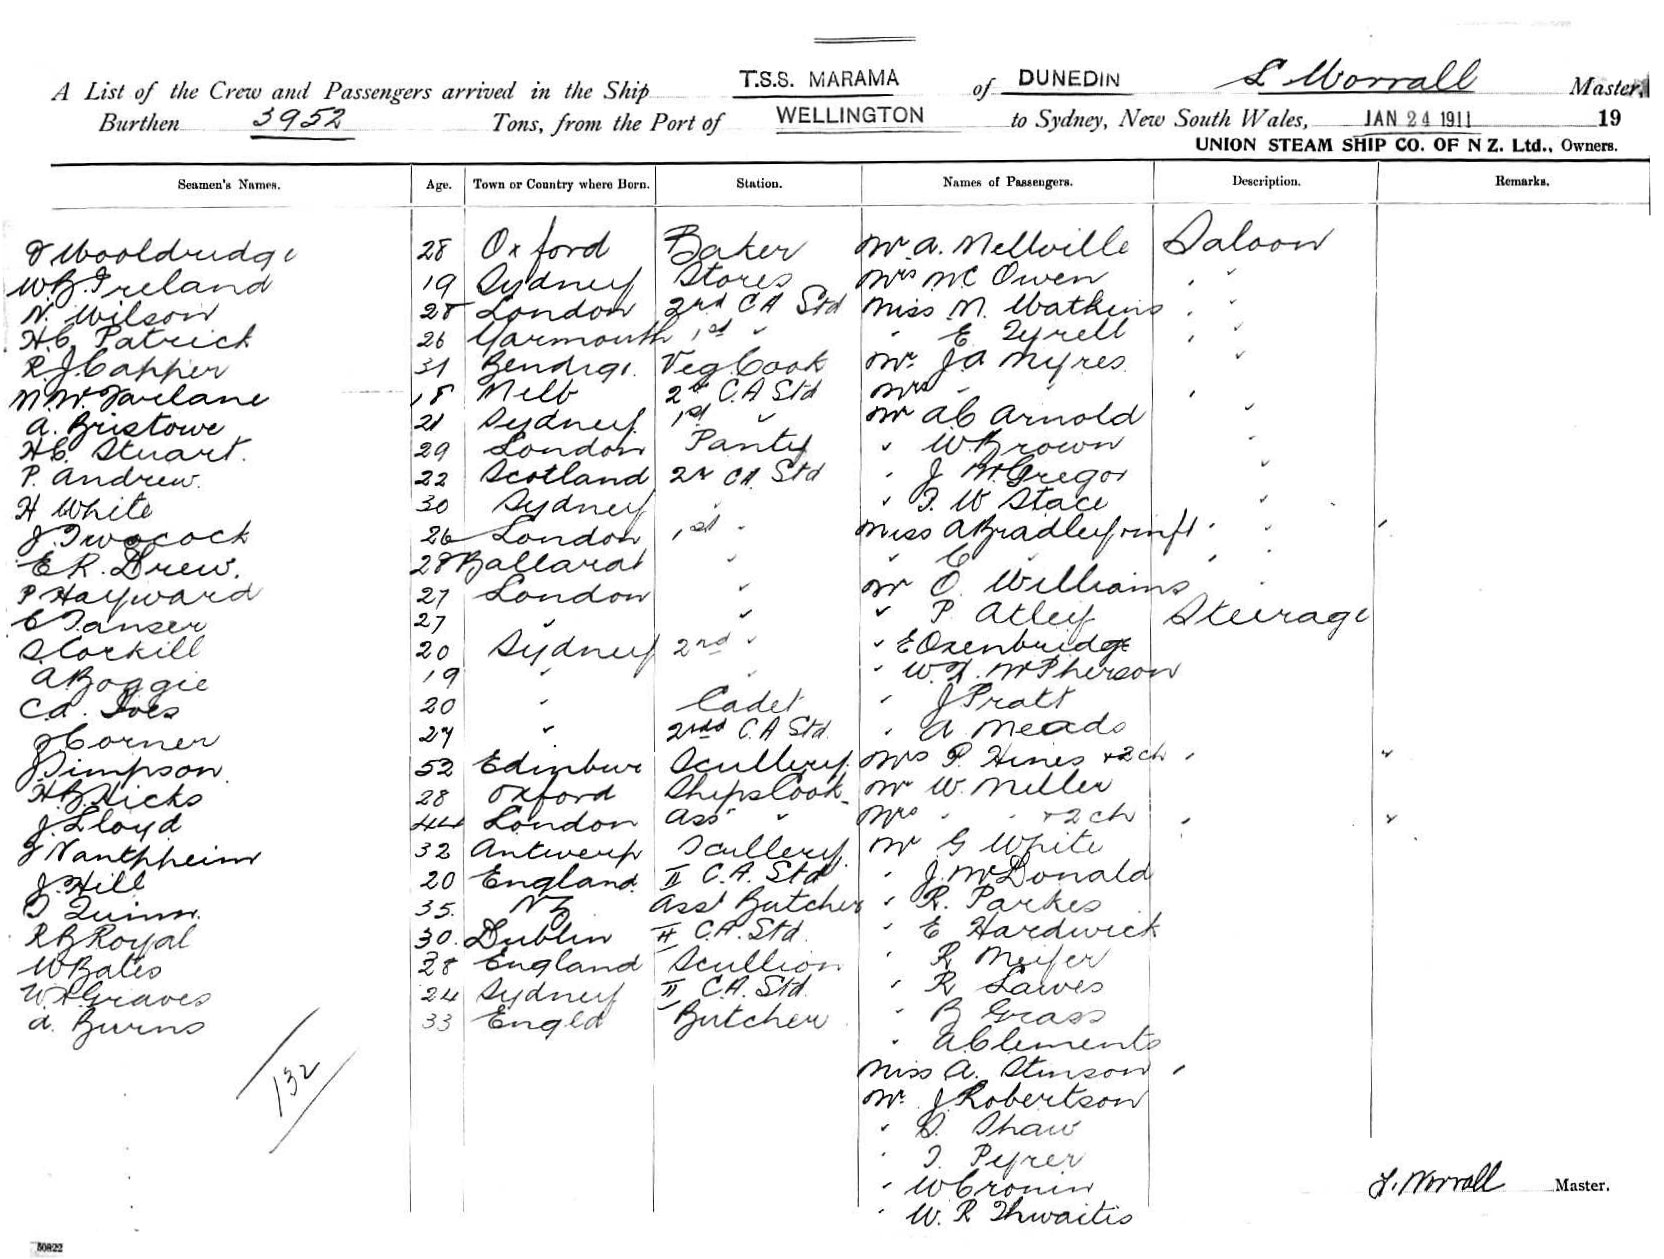 A List of the Crew and Passengers arrived in the Ship T.S.S. MARAMA of DUNEDIN L Worrall Master,
Burthen 3952 Tons, from the Port of WELLINGTON to Sydney, New South Wales, JAN 24 1911 19
UNION STEAM SHIP CO. OF N Z. Ltd., Owners.
Seamen's Names. Age. Town or Country where Born. Station. Names of Passengers. Description. Remarks.
Wooldridge 28 Oxford Baker Mr A. Mellville Saloon
W B Ireland 19 Sydney Stores Mrs Mc Owen "
N. Wilson 28 London 2nd C A Std Miss M. Watkins "
H C Patrick 26 Yarmouth 1st " " E Tyrell "
R. J. Capper 31 Bendigo Veg Cook Mr J A Myres "
M. McFarlane 18 Melb 2nd C.A Std Mrs "
A. Bristowe 21 Sydney 1st " Mr A C Arnold "
H C Stuart. 29 London Pantry " W Brown "
P. Andrew. 22 Scotland 2nd CA Std " J McGregor "
H White 30 Sydney " " T. W Stace "
J. Twocock 26 London 1st " Miss A Bradley + inft "
E R. Drew. 28 Ballarat " " C " "
P Hayward 27 London " Mr O. Williams "
C Tanser 27 " " " P. Atley Steerage
S Corkill 20 Sydney 2nd " " E Oxenbridge
A Boggie 19 " " " W. H. McPherson
C A. Ives 20 " Cadet " J Pratt
J Corner 27 " 2nd C.A Std. " A Meads
J Simpson. 52 Edinbur Scullery Mrs P. Hines + 2 ch
H B Hicks 28 Oxford Ships Cook Mr W. Miller
J. Lloyd 44 London Ass " Mrs " " + 2 ch
J Vantpheim 32 Antwerp Scullery Mr G White
J. Hill 20 England II C.A. Std " J. McDonald
T Quinn. 35. NZ Asst Butcher " R. Parkes
R B Royal 30. Dublin II C.A. Std. " E Hardwick
W Bates 28 England Scullion " R Meyer
W H Graves 24 Sydney II C.A. Std " R Lawes
A. Burns 33 Engld Butcher " B Grass
" A Clements
132 Miss A. Stinson
Mr. J Robertson
" S. Shaw
" T. Pyrer
" W Cronin
" W. R Thwaitis
L. Worrall Master.
50822